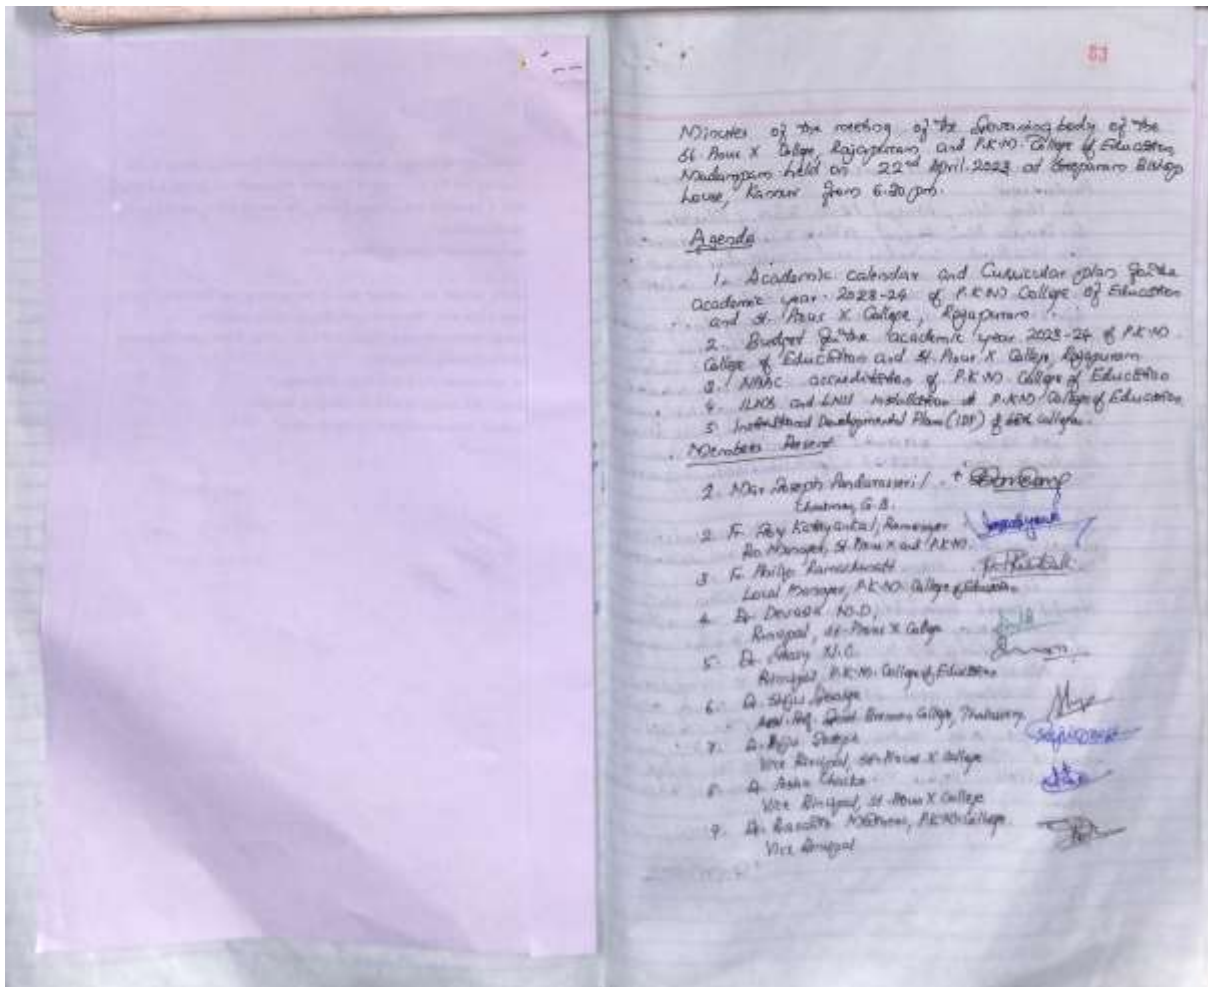 83
Minutes of the meeting of the Governing body of the
St. Pious X College, Rajapuram and P.K.M. College of Education
Madampam held on 22nd April 2023 at Sreepuram Bishop
house, Kannur from 6.30 pm.
Agenda
1. Academic calendar and Curricular plan for the
academic year 2023-24 of P.K.M College of Education
and St. Pious X College, Rajapuram.
2. Budget for the academic year 2023-24 of P.K.M.
College of Education and St. Pious X College, Rajapuram
3. NAAC accreditation of P.K.M. College of Education
4. and installation at P.K.M College of Education
5. Institutional Developmental Plan (IDP) of both colleges.
Members Present
Mar Joseph Pandarasseril
Chairman, G.B.
2. Fr. Joy
Pro Manager, St. Pious X and P.K.M.
3. Fr. Philip Ramachanatt
Local Manager, P.K.M. College of Education
4. Dr. Devasia M.D,
Principal, St. Pious X College
5. Dr. N.C.
Principal, P.K.M. College of Education
6. Dr. George
Asst. Prof. Govt. Brennen College, Thalassery
7. Dr. Joseph
Vice Principal, St. Pious X College
8. Dr. Asha Chacko
Vice Principal, St. Pious X College
9. Dr. Mathew, P.K.M. College
Vice Principal